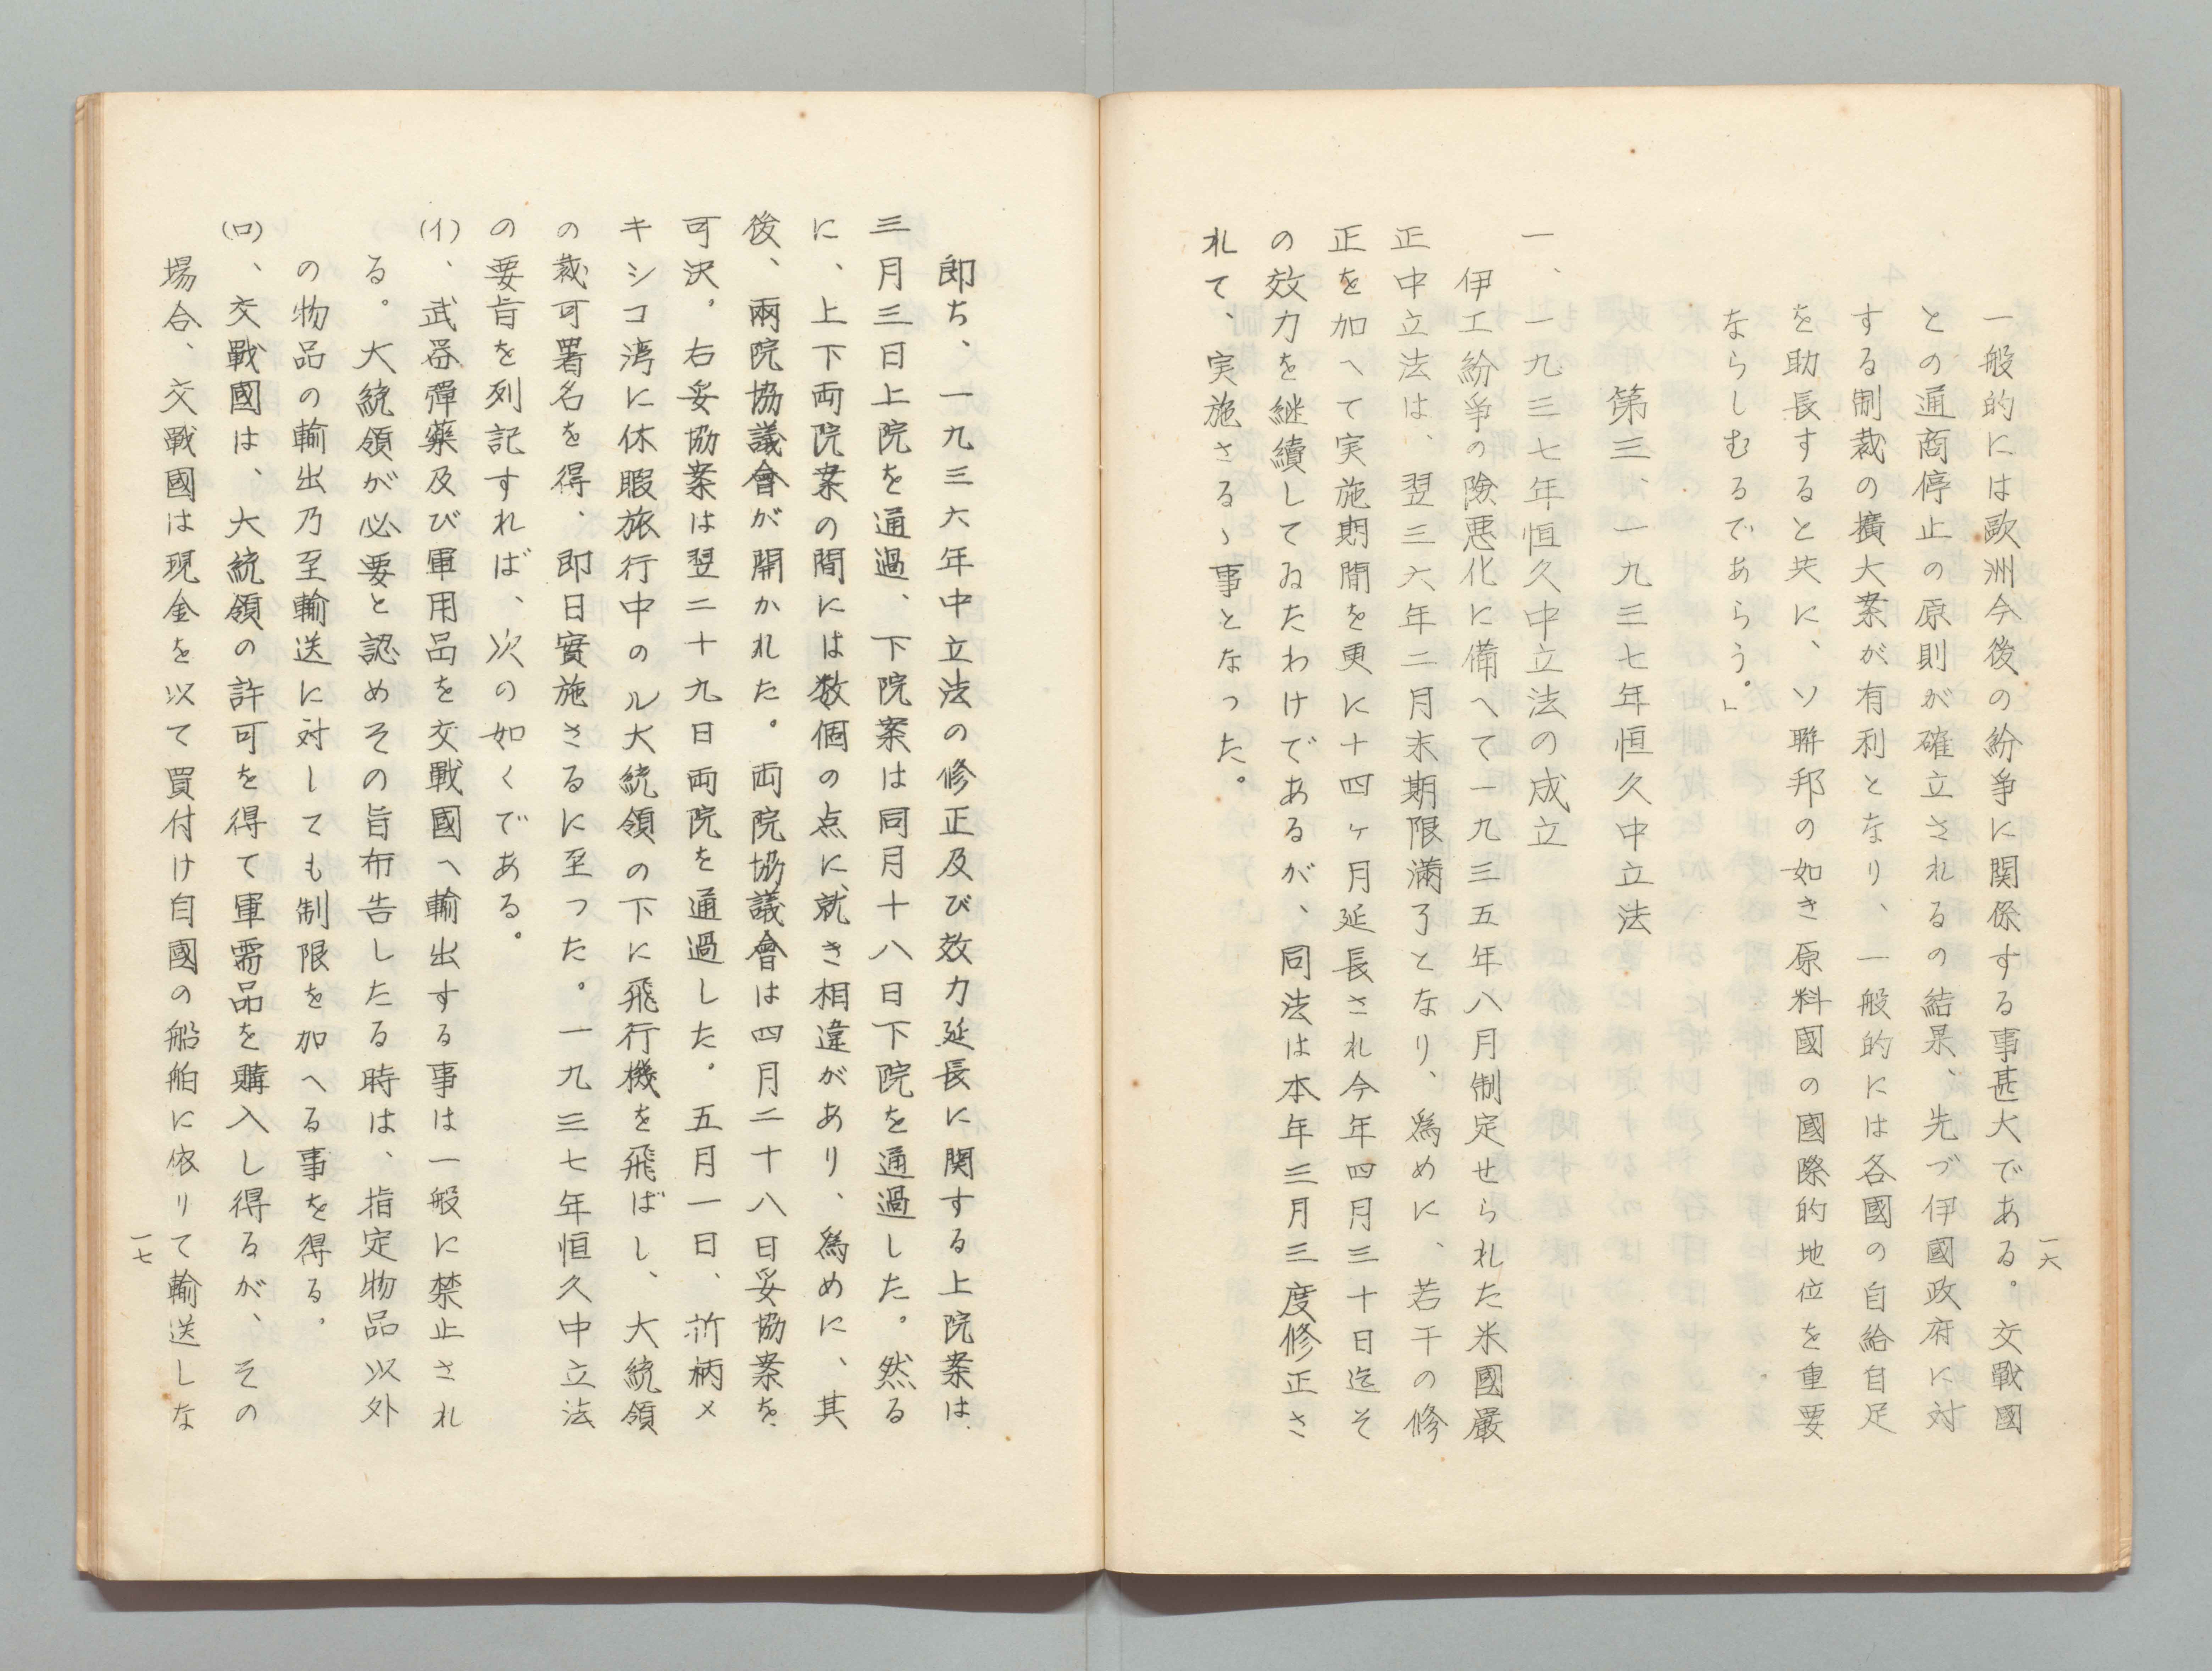 一六
一般的には歐洲今後の紛争に関係する事甚大である。交戰國
との通商停止の原則が確立されるの結果、先づ伊國政府に対
する制裁の擴大案が有利となり、一般的には各國の自給自足
を助長すると共に、ソ聯邦の如き原料國の國際的地位を重要
ならしむるであらう。」
第三、一九三七年恒久中立法
一、一九三七年恒久中立法の成立
伊エ紛争の險悪化に備へて一九三五年八月制定せられた米國嚴
正中立法は、翌三六年二月末期限滿了となり、爲めに、若干の修
正を加へて実施期間を更に十四ヶ月延長され今年四月三十日迄そ
の效力を継續してゐたわけであるが、同法は本年三月三度修正さ
れて、実施さるゝ事となった。
即ち、一九三六年中立法の修正及び效力延長に関する上院案は、
三月三日上院を通過、下院案は同月十八日下院を通過した。然る
に、上下両院案の間には数個の点に就き相違があり、爲めに、其
後、兩院協議會が開かれた。両院協議會は四月二十八日妥協案を
可決。右妥協案は翌二十九日両院を通過した。五月一日、折柄メ
キシコ湾に休暇旅行中のル大統領の下に飛行機を飛ばし、大統領
の裁可署名を得、即日實施さるに至った。一九三七年恒久中立法
の要旨を列記すれば、次の如くである。
(イ)、武器彈藥及び軍用品を交戰國へ輸出する事は一般に禁止され
る。大統領が必要と認めその旨布告したる時は、指定物品以外
の物品の輸出乃至輸送に対しても制限を加へる事を得る。
(ロ)、交戰國は、大統領の許可を得て軍需品を購入し得るが、その
場合、交戰國は現金を以て買付け自國の船舶に依りて輸送しな
一七